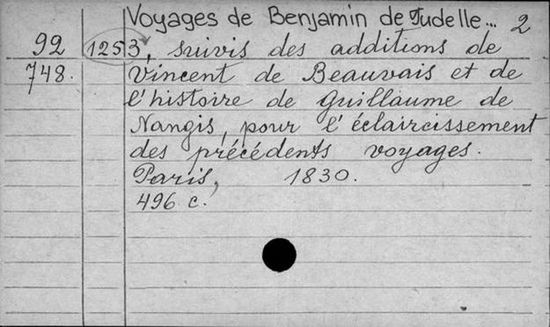 Voyages de Benjamin de Tudelle... 2
92 1253, suivis des additions de
748. Vincent de Beauvais et de
l'histoire de Guillaume de
Nangis, pour l'éclaircissement
des précédents voyages.
Paris, 1830.
496 c.